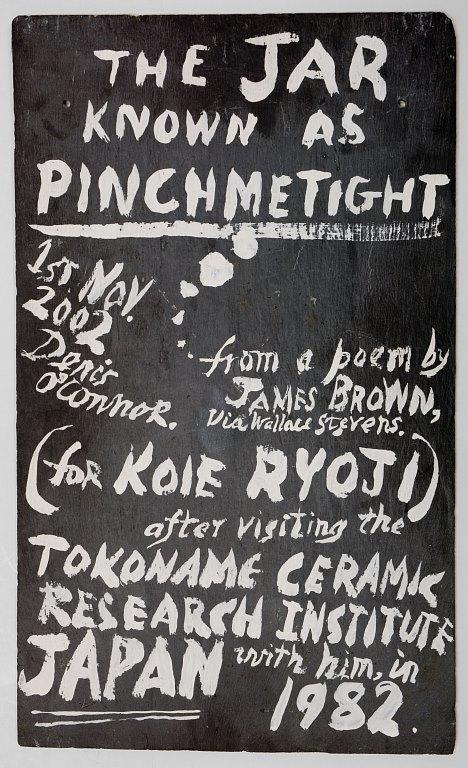 THE JAR
KNOWN AS
PINCHMETIGHT
1st Nov.
2002
Denis
O'Connor.
from a poem by
JAMES BROWN,
Via Wallace Stevens.
(for KOIE RYOJI)
after visiting the
TOKONAME CERAMIC
RESEARCH INSTITUTE
JAPAN with him, in
1982.